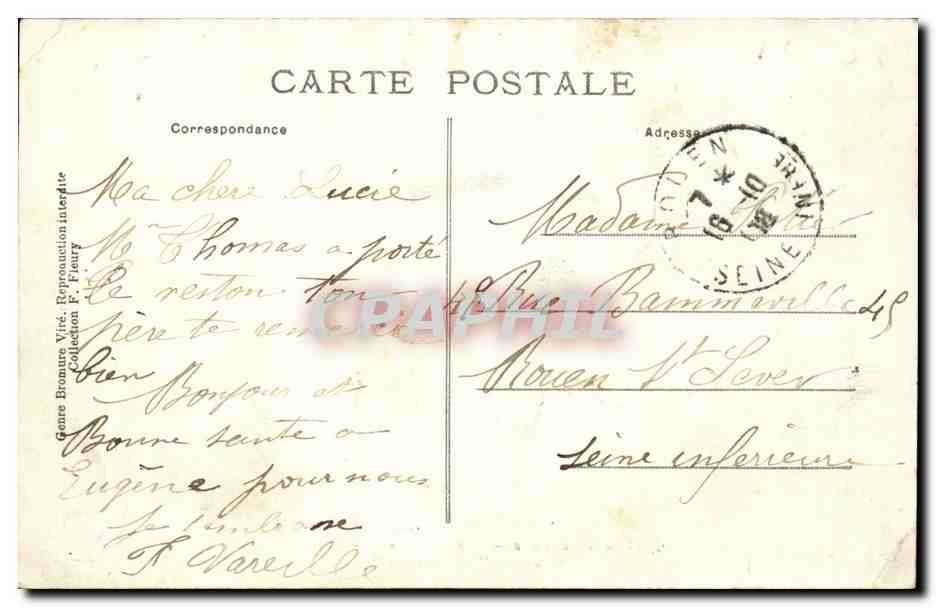 CARTE POSTALE
Correspondance
Adresse
Ma chere Lucie
Mr Thomas a porté
Le reston ton
père te remercie
bien
Bonjour et
Bonne sante a
Eugène pour nous
Je t'embrasse
F Vareille
Madame
45 Rue Bammeville 45
Rouen St Sever
Seine inférieure
ROUEN
7 *
16 - 10
SEINE INFRE
Genre Bromure Viré. Reproduction interdite
Collection F. Fleury
CRAPHIL